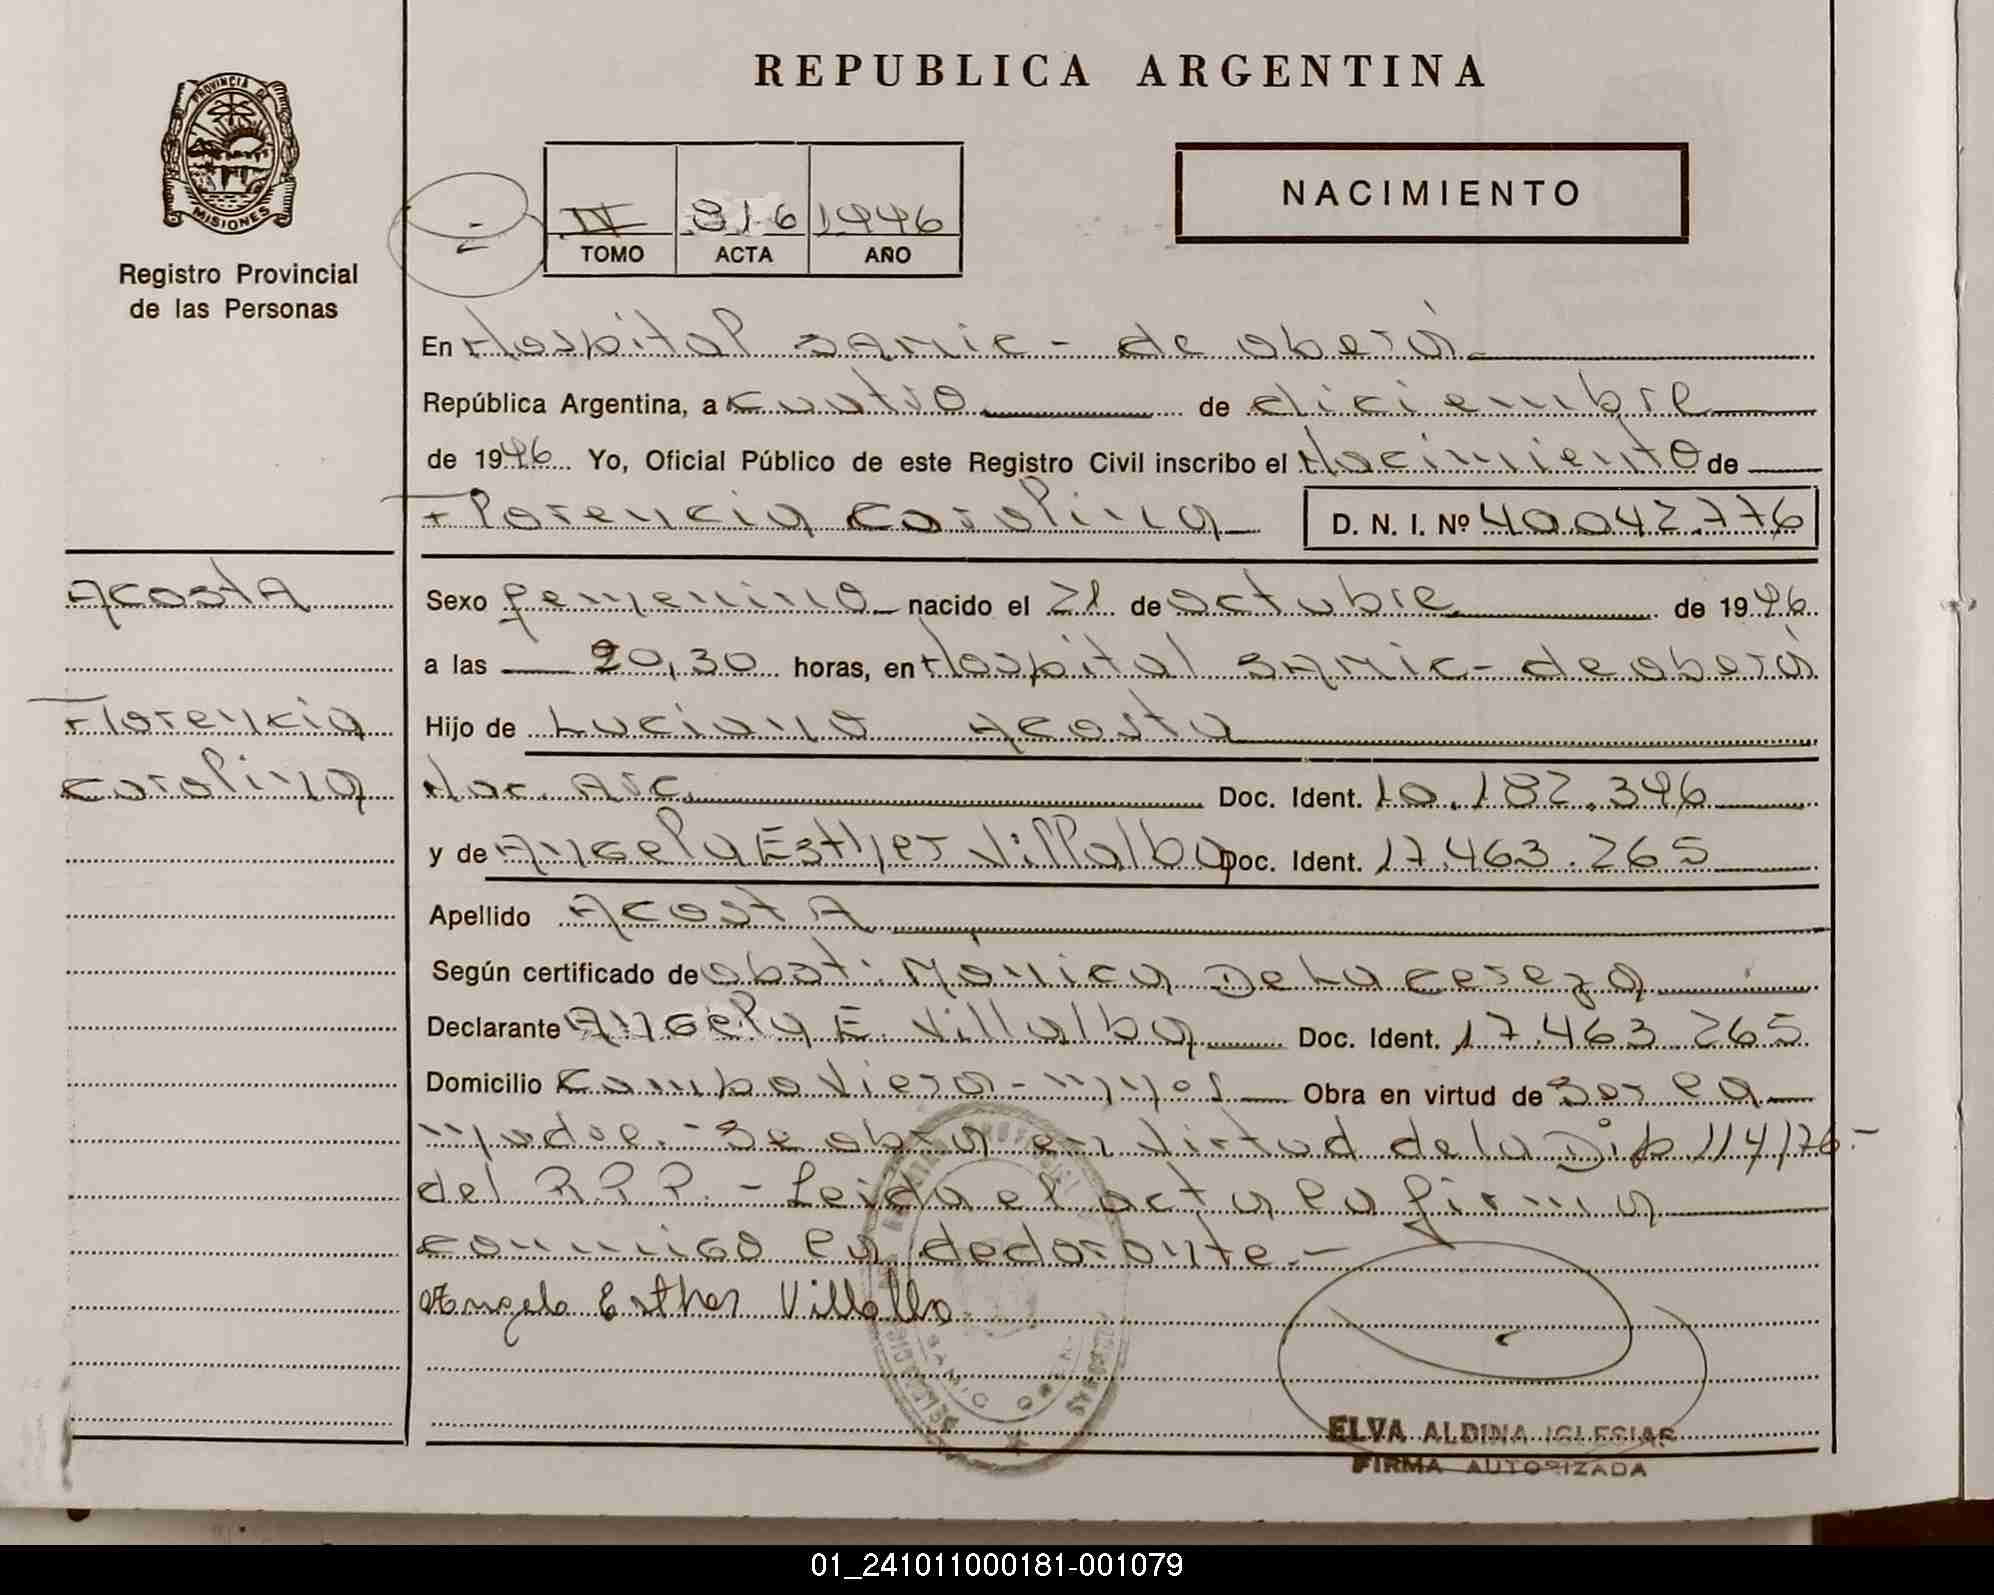 REPUBLICA ARGENTINA
PROVINCIA DE
MISIONES
Registro Provincial
de las Personas
NACIMIENTO
IV 816 1996
TOMO ACTA AÑO
En Hospital SAMIC - de oberá
República Argentina, a cuatro de diciembre
de 1996 Yo, Oficial Público de este Registro Civil inscribo el Nacimiento de
Florencia Carolina D. N. I. Nº 40.042.776
Acosta
Florencia
Carolina
Sexo femenino nacido el 21 de octubre de 1996
a las 20,30 horas, en Hospital SAMIC - de oberá
Hijo de Luciano Acosta
Nac. Arg. Doc. Ident. 10.182.396
y de Angela Esther Villalba Doc. Ident. 17.463.265
Apellido Acosta
Según certificado de obst. Mónica De La
Declarante Angela E. Villalba Doc. Ident. 17.463.265
Domicilio Campo Viera - Mnes Obra en virtud de Ser la
madre. - Se obra en virtud de la Disp 114/76.-
del R.P.P. - Leida el acta la firma
conmigo la declarante.-
Angela Esther Villalba
SAMIC
ELVA ALDINA IGLESIAS
FIRMA AUTORIZADA
01_241011000181-001079